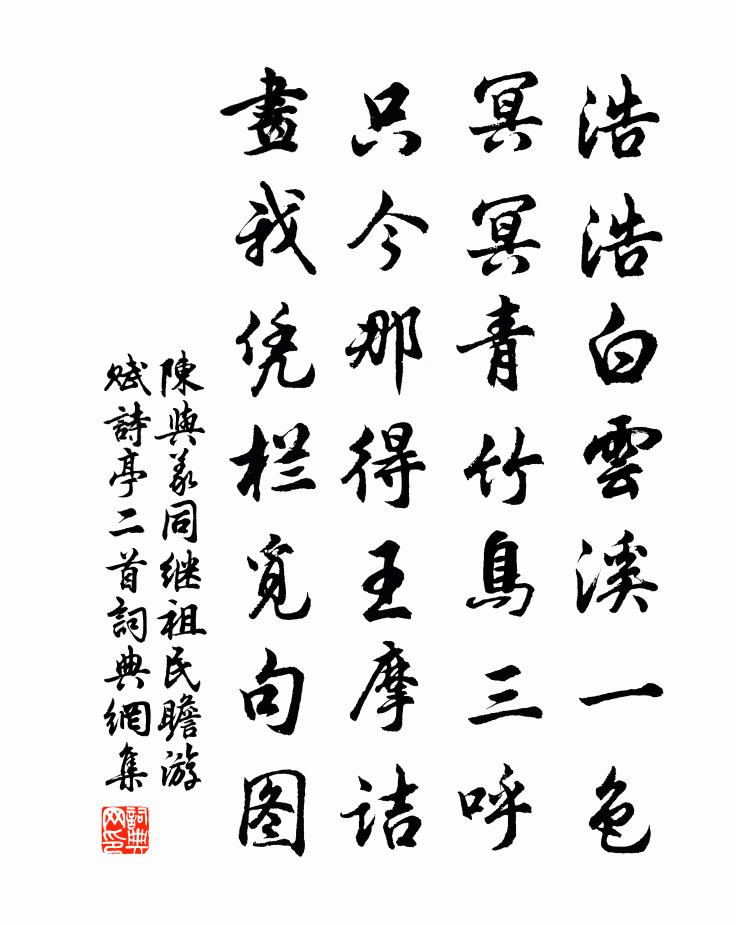 浩浩白雲溪一色
冥冥青竹鳥三呼
只今那得王摩詰
畫我凭栏觅句图
陳與義同继祖民瞻游
赋詩亭二首詞典網集
詞典
网印